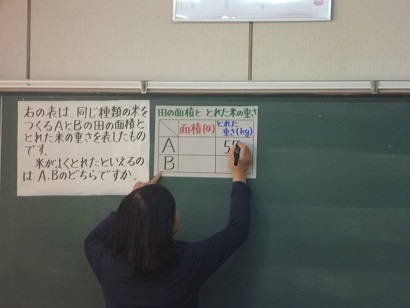 右の表は 同じ種類の米を
つくるAとBの田の面積と
とれた米の重さを表したもの
です。
米がよくとれたといえるの
は A、Bのどちらですか。
田の面積と とれた米の重さ
面積(a) とれた
重さ(kg)
A
B